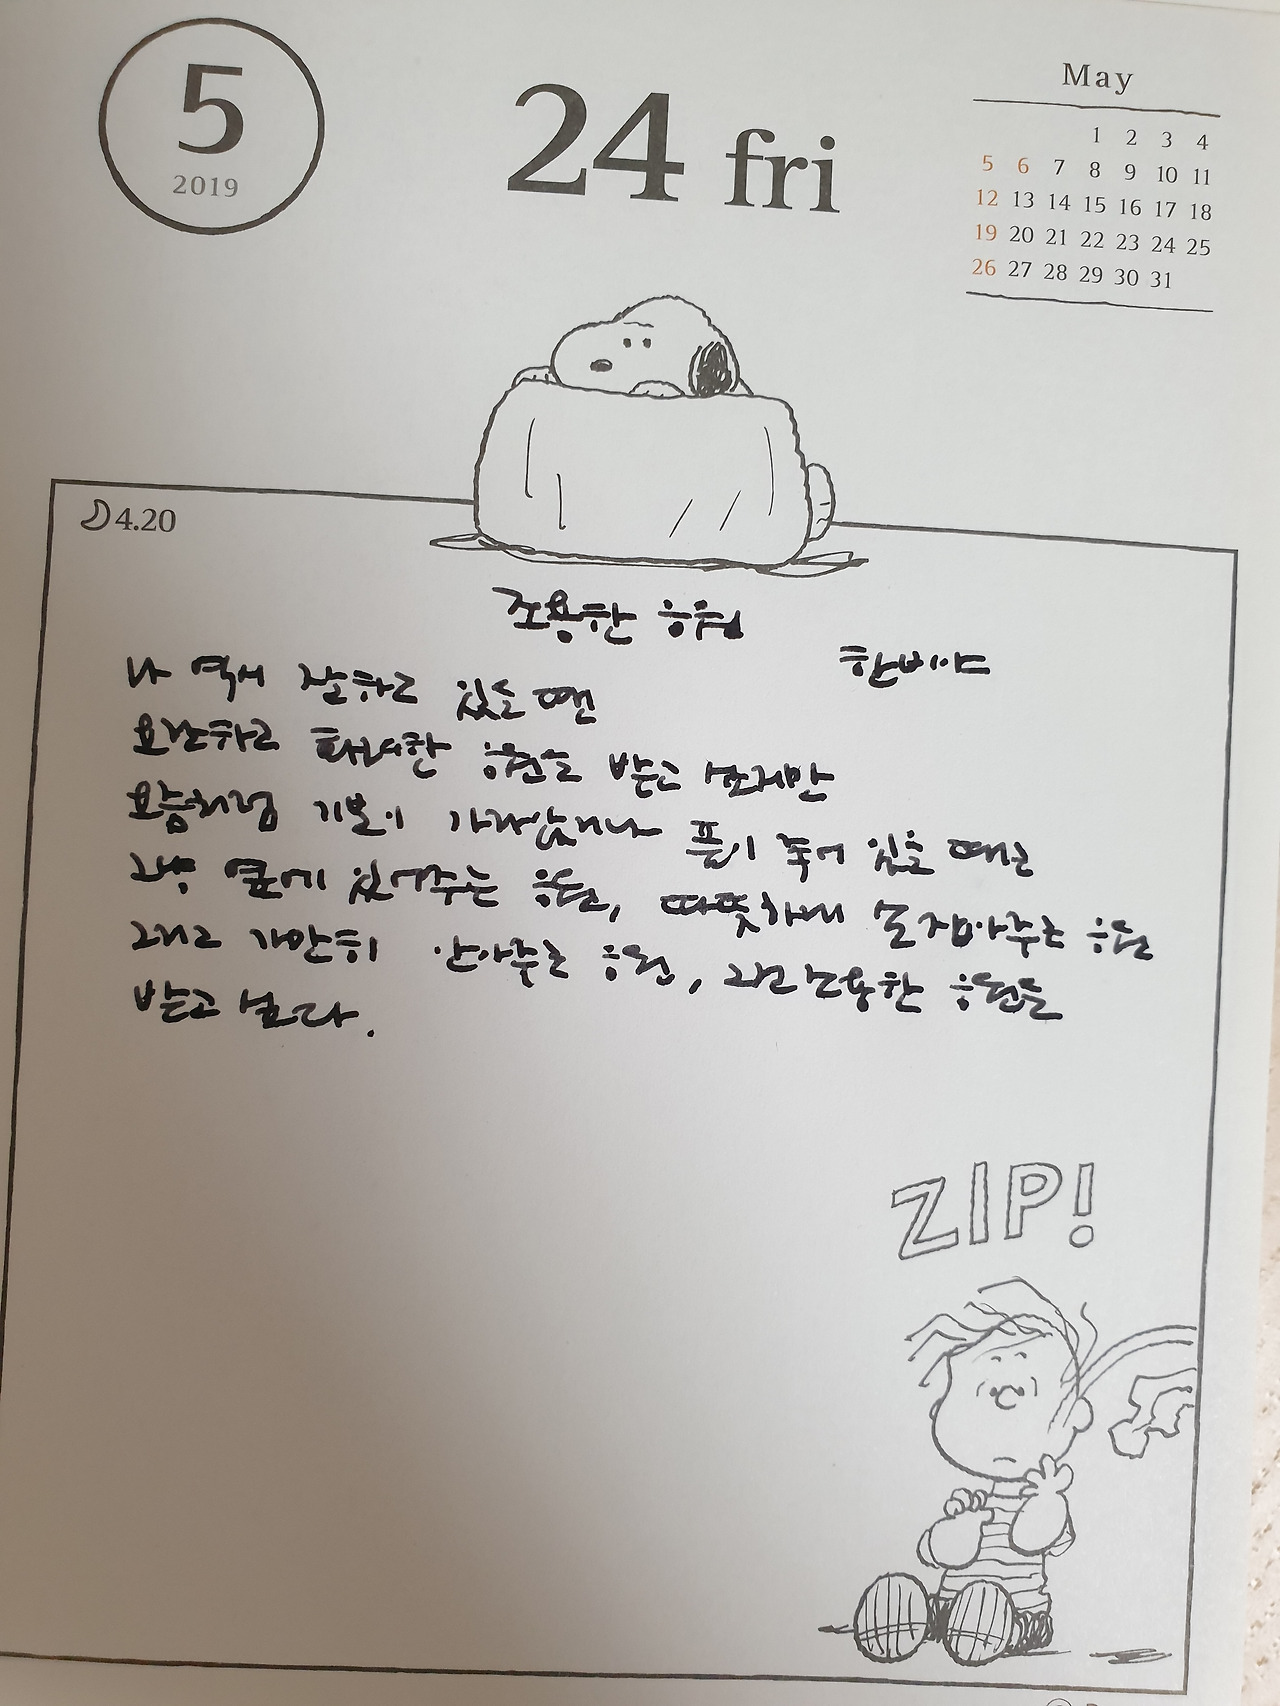 5
2019
24 fri
May
1 2 3 4
5 6 7 8 9 10 11
12 13 14 15 16 17 18
19 20 21 22 23 24 25
26 27 28 29 30 31
4.20
조용한 응원
한비야
나 역시 잘하고 있을 땐
요란하고 화려한 응원을 받고 싶지만
요즘처럼 기분이 가라앉거나 풀이 죽어 있을 때는
그냥 옆에 있어주는 응원, 따뜻하게 손 잡아주는 응원
그리고 가만히 안아주는 응원, 그런 조용한 응원을
받고 싶다.
ZIP!